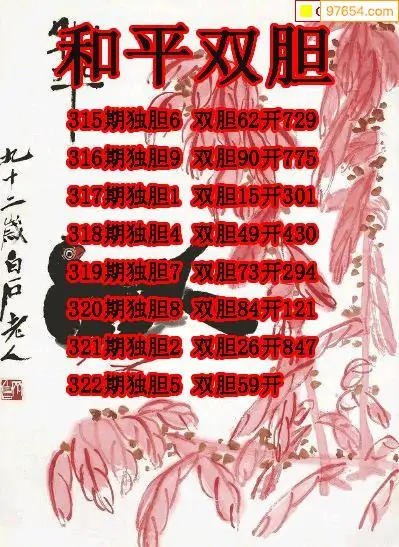 97654.com
和平双胆
315期独胆6 双胆62开729
316期独胆9 双胆90开775
317期独胆1 双胆15开301
318期独胆4 双胆49开430
319期独胆7 双胆73开294
320期独胆8 双胆84开121
321期独胆2 双胆26开847
322期独胆5 双胆59开
九十二岁白石老人